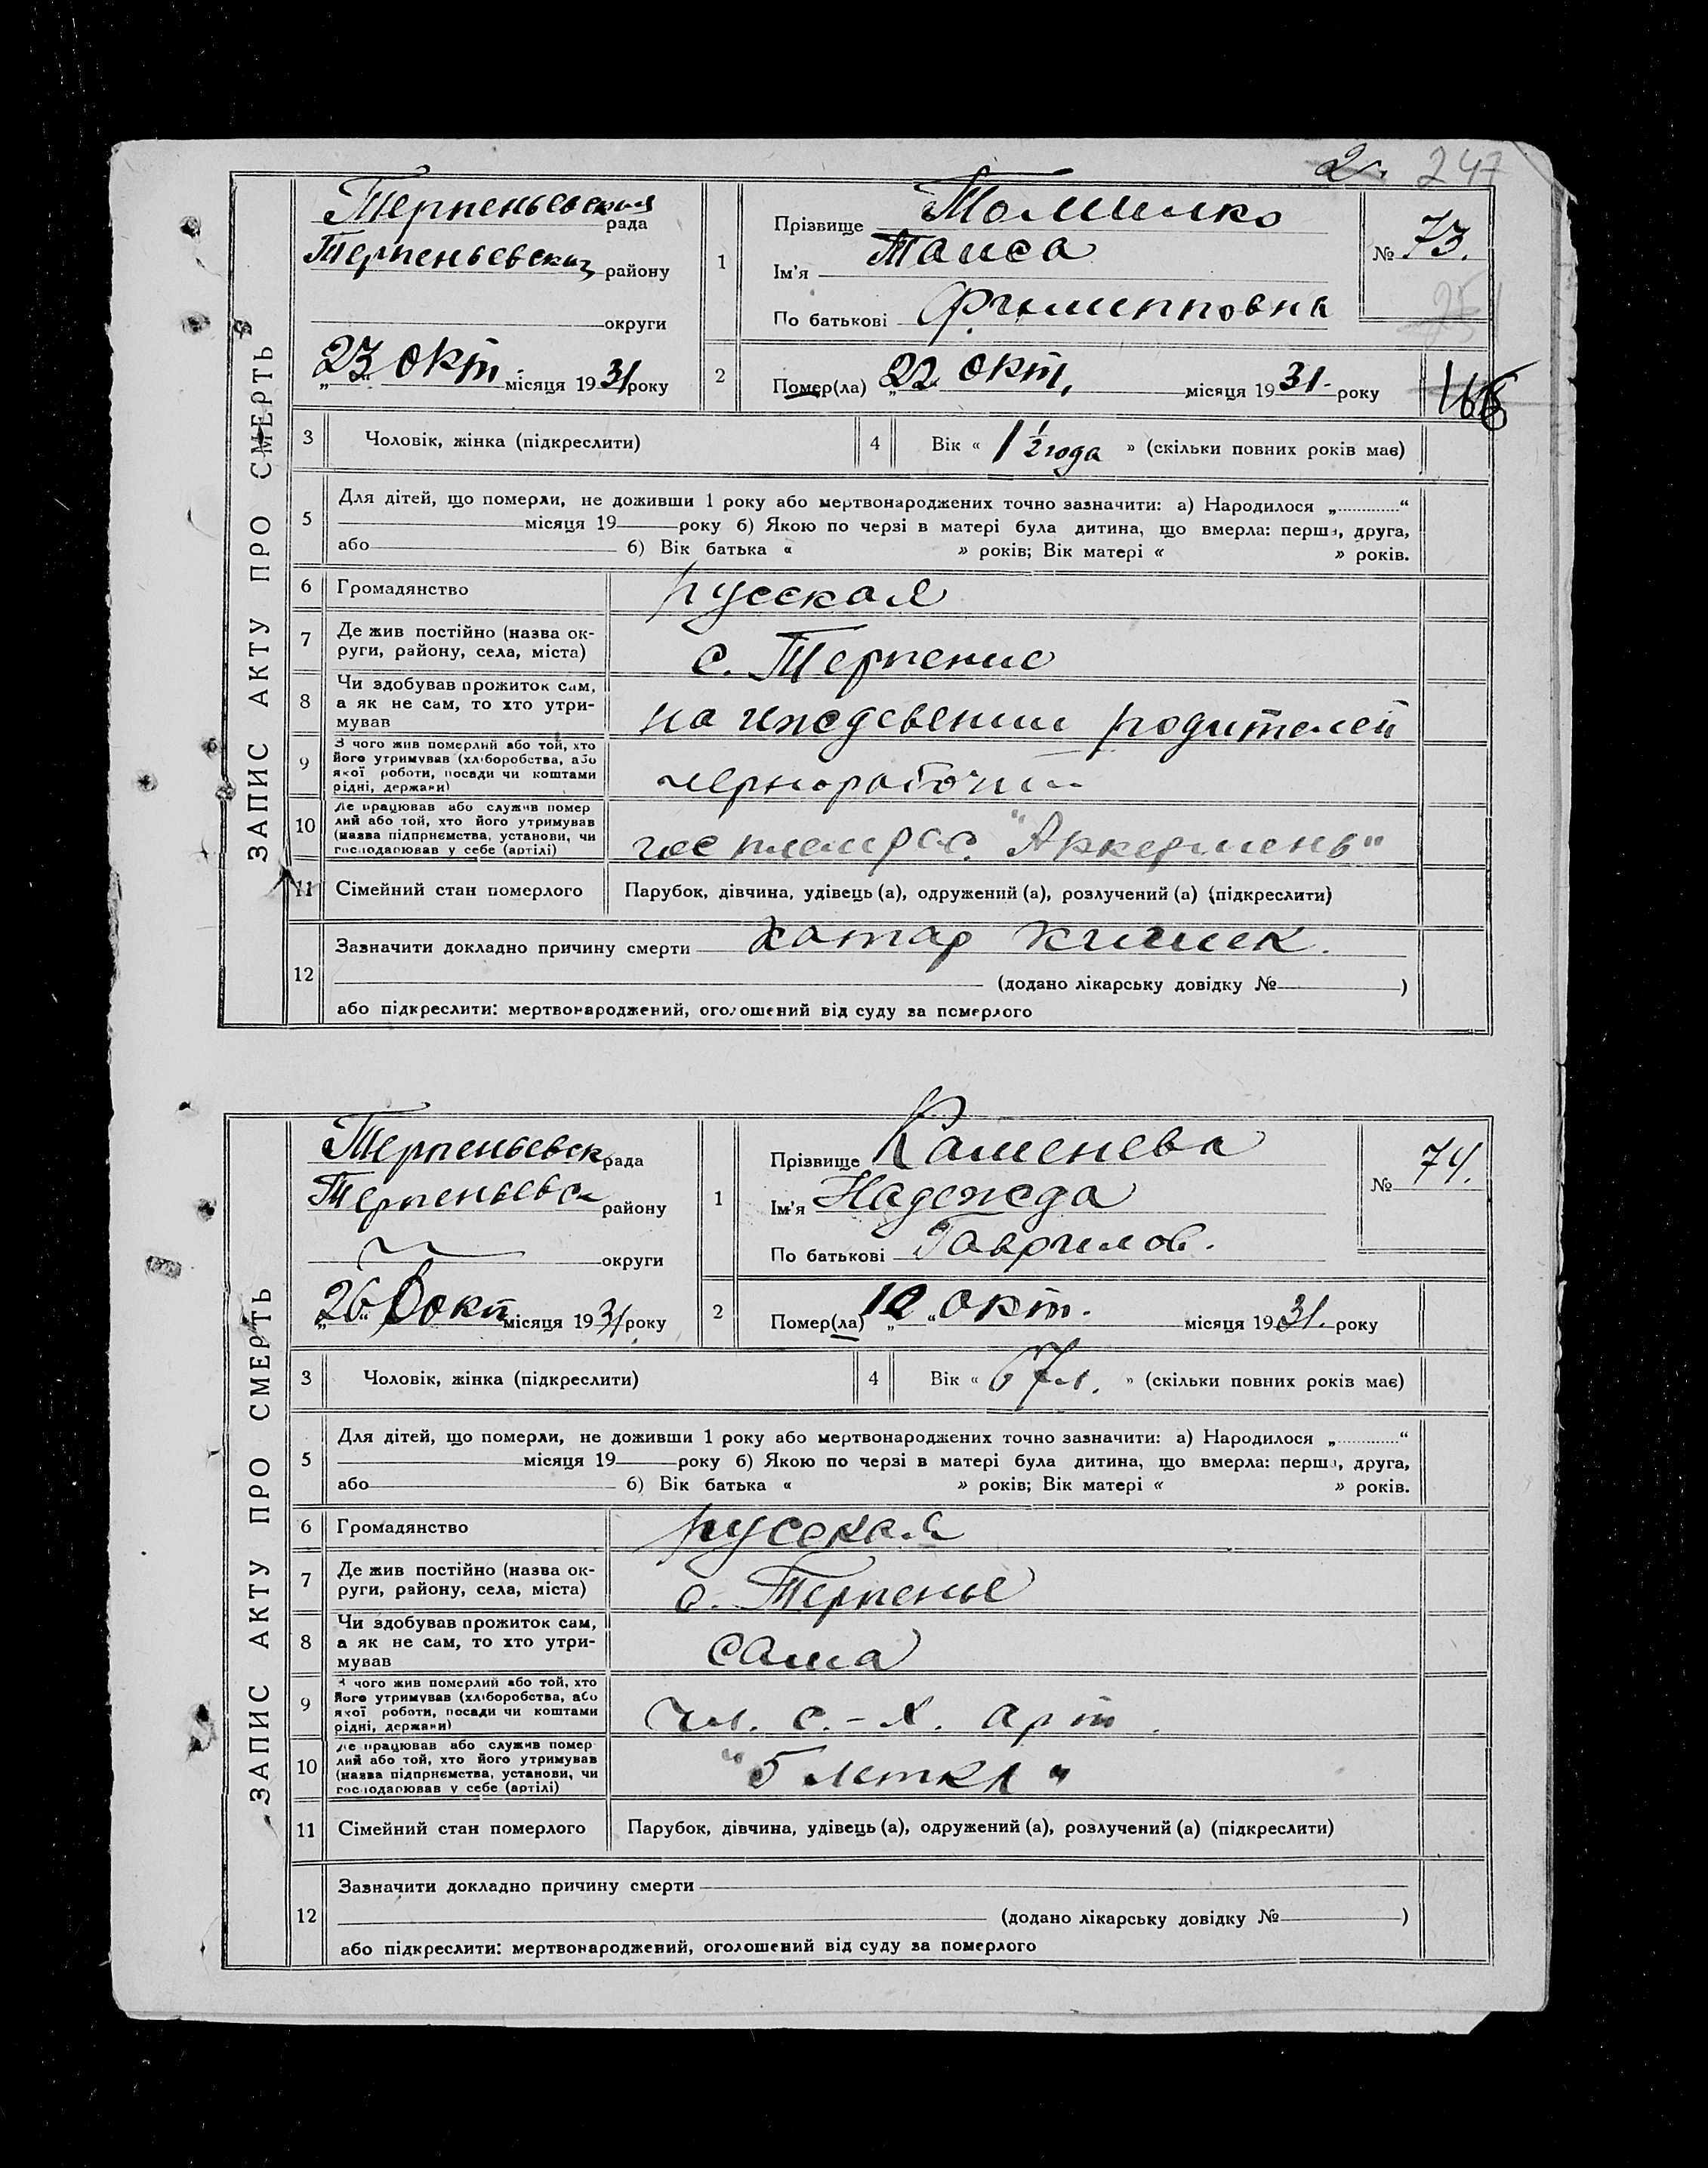 247
ЗАПИС АКТУ ПРО СМЕРТЬ
Терпеньевская рада
Терпеньевский району
округи
„23“ окт. місяця 1931 року
1
Прізвище Томилко
Ім'я Таиса
По батькові Филипповна
№ 73.
2
Помер(ла) „22“ окт. місяця 1931. року
166
3
Чоловік, жінка (підкреслити)
4
Вік « 1 1/2 года » (скільки повних років має)
5
Для дітей, що померли, не доживши 1 року або мертвонароджених точно зазначити: а) Народилося „ “
місяця 19 року б) Якою по черзі в матері була дитина, що вмерла: перша, друга,
або б) Вік батька « » років; Вік матері « » років.
6
Громадянство русская
7
Де жив постійно (назва ок-
руги, району, села, міста)
с. Терпение
8
Чи здобував прожиток сам,
а як не сам, то хто утри-
мував
на иждевении родителей
9
З чого жив померлий або той, хто
його утримував (хліборобства, або
якої роботи, посади чи коштами
рідні, держави)
чернорабочий
10
Де працював або служив помер
лий або той, хто його утримував
(назва підприємства, установи, чи
господарював у себе (артілі)
"Аккермень"
11
Сімейний стан померлого
Парубок, дівчина, удівець (а), одружений (а), розлучений (а) (підкреслити)
12
Зазначити докладно причину смерти катар кишек.
(додано лікарську довідку № )
або підкреслити: мертвонароджений, оголошений від суду за померлого
ЗАПИС АКТУ ПРО СМЕРТЬ
Терпеньевск рада
Терпеньевск району
округи
„26“ окт місяця 1931 року
1
Прізвище Каменева
Ім'я Надежда
По батькові Гаврилов.
№ 74.
2
Помер(ла) „10“ окт. місяця 1931. року
3
Чоловік, жінка (підкреслити)
4
Вік « 67 л. » (скільки повних років має)
5
Для дітей, що померли, не доживши 1 року або мертвонароджених точно зазначити: а) Народилося „ “
місяця 19 року б) Якою по черзі в матері була дитина, що вмерла: перша, друга,
або б) Вік батька « » років; Вік матері « » років.
6
Громадянство русская
7
Де жив постійно (назва ок-
руги, району, села, міста)
с. Терпенье
8
Чи здобував прожиток сам,
а як не сам, то хто утри-
мував
сама
9
З чого жив померлий або той, хто
його утримував (хліборобства, або
якої роботи, посади чи коштами
рідні, держави)
чл. с.-х. арт.
10
Де працював або служив помер
лий або той, хто його утримував
(назва підприємства, установи, чи
господарював у себе (артілі)
"5 летка"
11
Сімейний стан померлого
Парубок, дівчина, удівець (а), одружений (а), розлучений (а) (підкреслити)
12
Зазначити докладно причину смерти
(додано лікарську довідку № )
або підкреслити: мертвонароджений, оголошений від суду за померлого